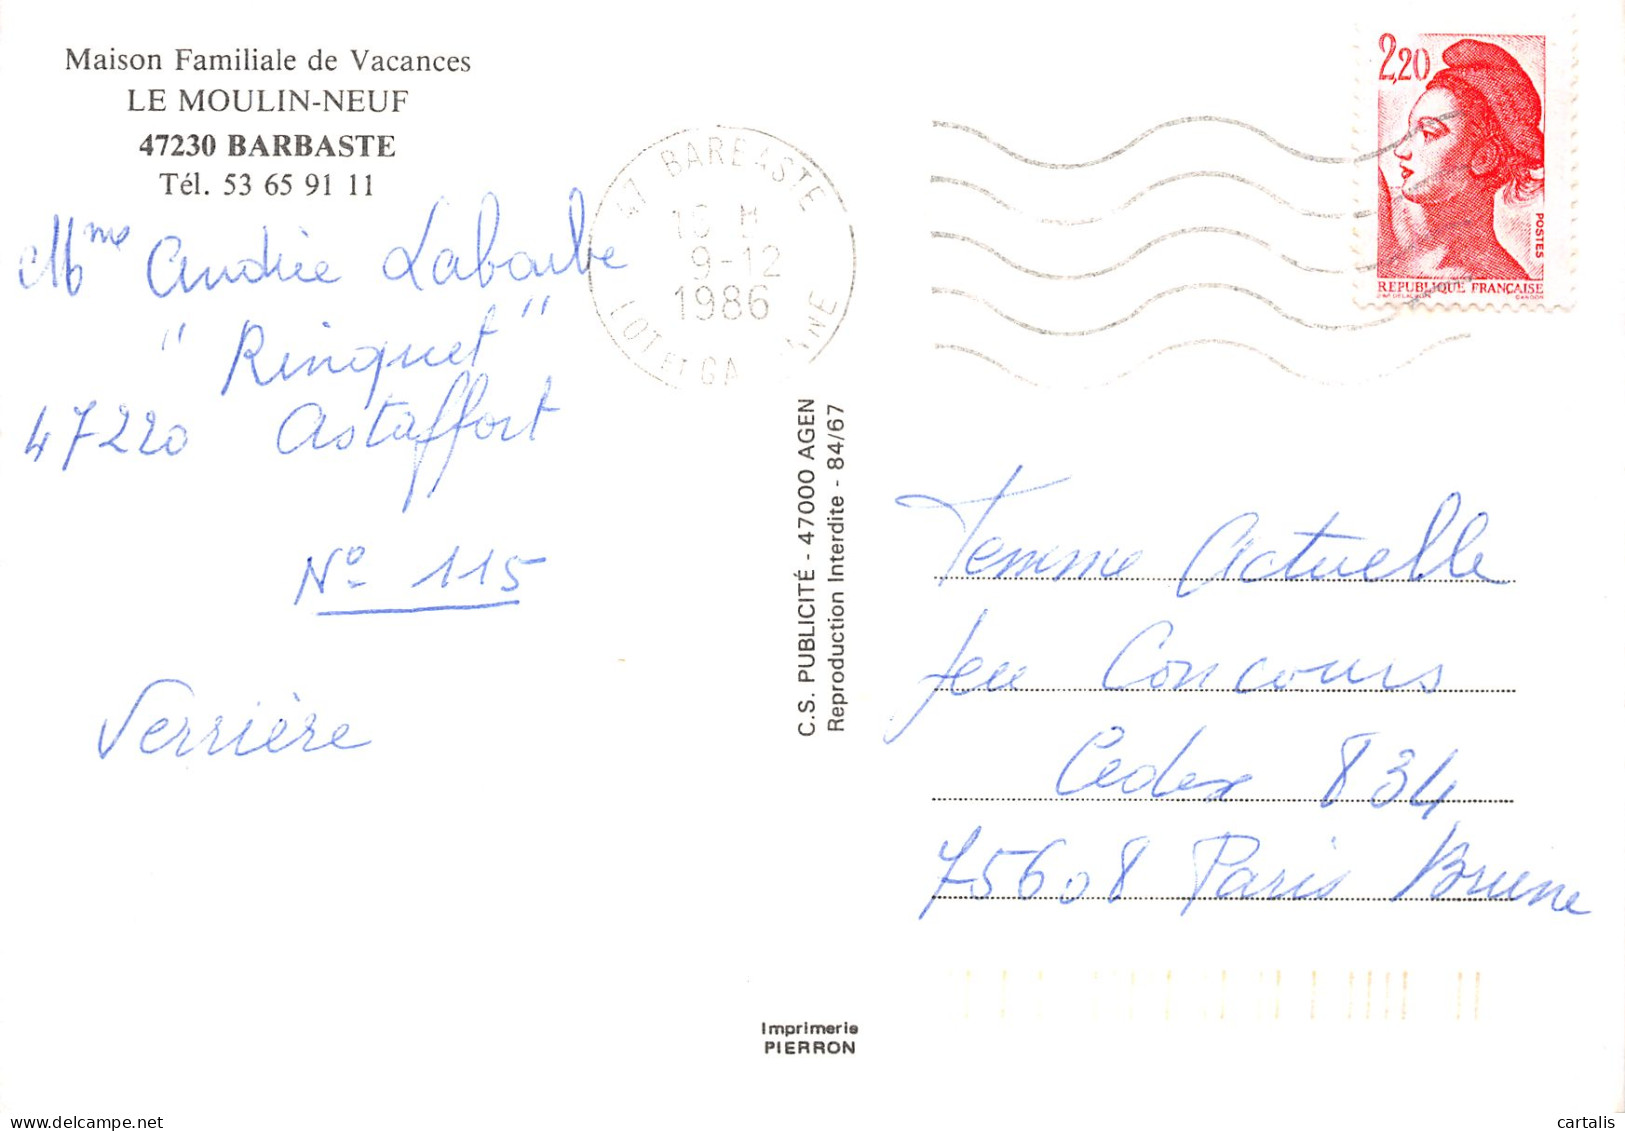 Maison Familiale de Vacances
LE MOULIN-NEUF
47230 BARBASTE
Tél. 53 65 91 11
Mme Andrée Labarbe
"Rinquet"
47220 Astaffort
N° 115
Verrière
47 BARBASTE
9-12
1986
LOT ET GA
2,20
POSTES
REPUBLIQUE FRANÇAISE
GANDON
C.S. PUBLICITÉ - 47000 AGEN
Reproduction Interdite - 84/67
Femme Actuelle
Jeu Concours
Cedex 834
75608 Paris Brune
Imprimerie
PIERRON
cartalis